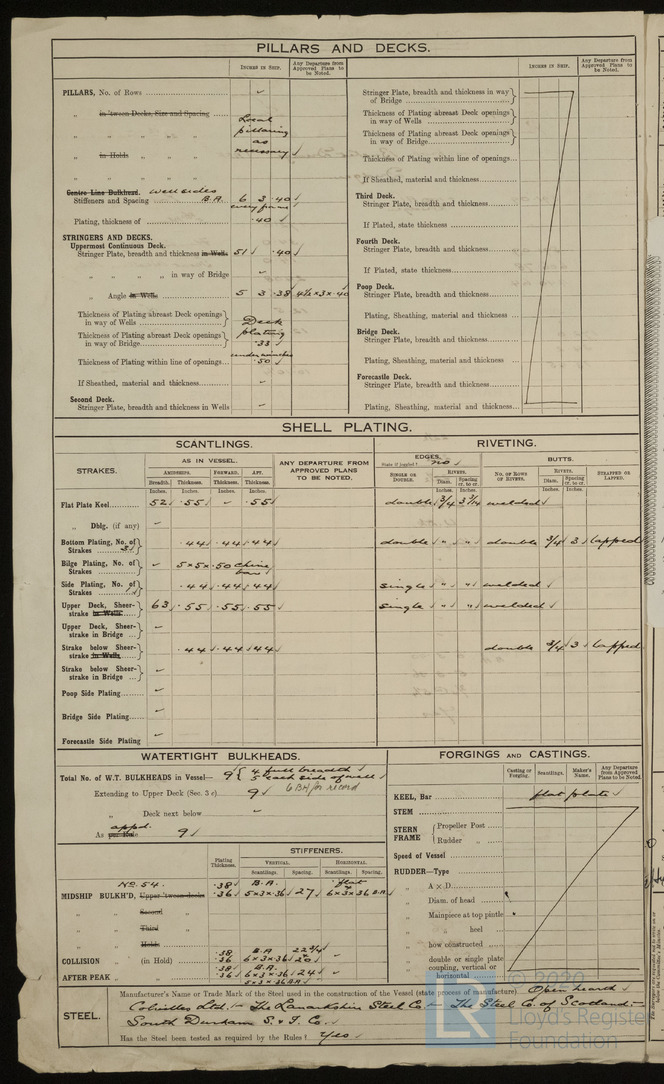 PILLARS AND DECKS.
INCHES IN SHIP.
Any Departure from Approved Plans to be Noted.
PILLARS, No. of Rows
„ in 'tween Decks, Size and Spacing
Local
pillaring
as
necessary
„ in Holds „ „
Centre Line Bulkhead. well sides
Stiffeners and Spacing B.A. 6 3 .40
every frame
Plating, thickness of .40
STRINGERS AND DECKS.
Uppermost Continuous Deck.
Stringer Plate, breadth and thickness in Wells 51 .40
„ „ „ „ in way of Bridge
„ Angle in Wells 5 3 .38 4½ x 3 x .40
Thickness of Plating abreast Deck openings in way of Wells
Deck
Thickness of Plating abreast Deck openings in way of Bridge
plating
.33
under winches
Thickness of Plating within line of openings .50
If Sheathed, material and thickness
Second Deck.
Stringer Plate, breadth and thickness in Wells
INCHES IN SHIP.
Any Departure from Approved Plans to be Noted.
Stringer Plate, breadth and thickness in way of Bridge
Thickness of Plating abreast Deck openings in way of Wells
Thickness of Plating abreast Deck openings in way of Bridge
Thickness of Plating within line of openings
If Sheathed, material and thickness
Third Deck.
Stringer Plate, breadth and thickness
If Plated, state thickness
Fourth Deck.
Stringer Plate, breadth and thickness
If Plated, state thickness
Poop Deck.
Stringer Plate, breadth and thickness
Plating, Sheathing, material and thickness
Bridge Deck.
Stringer Plate, breadth and thickness
Plating, Sheathing, material and thickness
Forecastle Deck.
Stringer Plate, breadth and thickness
Plating, Sheathing, material and thickness
SHELL PLATING.
SCANTLINGS.
RIVETING.
STRAKES.
AS IN VESSEL.
AMIDSHIPS. FORWARD. AFT.
Breadth. Thickness. Thickness. Thickness.
Inches. Inches. Inches. Inches.
ANY DEPARTURE FROM APPROVED PLANS TO BE NOTED.
EDGES.
State if joggled? no
SINGLE OR DOUBLE.
RIVETS.
Diam. Spacing cr. to cr.
Inches. Inches.
BUTTS.
NO. OF ROWS OF RIVETS.
RIVETS.
Diam. Spacing cr. to cr.
Inches. Inches.
STRAPPED OR LAPPED.
Flat Plate Keel 52 .55 .55 double 3/4 welded
„ Dblg. (if any)
Bottom Plating, No. of Strakes .44 .44 .44 double „ „ double 3/4 3 lapped
Bilge Plating, No. of Strakes 5 x 5 x .50 chine bar
Side Plating, No. of Strakes .44 .44 .44 single „ „ welded
Upper Deck, Sheerstrake in Wells 63 .55 .55 .55 single „ „ welded
Upper Deck, Sheerstrake in Bridge
Strake below Sheerstrake in Wells .44 .44 .44 double 3/4 3 lapped
Strake below Sheerstrake in Bridge
Poop Side Plating
Bridge Side Plating
Forecastle Side Plating
WATERTIGHT BULKHEADS.
Total No. of W.T. BULKHEADS in Vessel— 9 { 4 full breadth
5 each side of well
6 BH for record
Extending to Upper Deck (Sec. 3 c) 9
„ Deck next below
appd.
As per Rule 9
Plating Thickness.
STIFFENERS.
VERTICAL. HORIZONTAL.
Scantlings. Spacing. Scantlings. Spacing.
No. 54. .38 B.A. flat
MIDSHIP BULKH'D, Upper 'tween decks .36 5x3x.36 27 6x3x.36 B.A.
„ Second
„ Third
„ Holds
.38 B.A. 22 3/4
COLLISION „ (in Hold) .36 6x3x.36 20
.38 B.A.
AFTER PEAK „ „ .36 6x3x.36 24
5x3x.36 B.A.
FORGINGS AND CASTINGS.
Casting or Forging. Scantlings. Maker's Name. Any Departure from Approved Plans to be Noted
KEEL, Bar flat plate
STEM
STERN FRAME { Propeller Post
Rudder „
Speed of Vessel
RUDDER—Type
„ A x D
„ Diam. of head
„ Mainpiece at top pintle
„ „ heel
„ how constructed
„ double or single plate
coupling, vertical or horizontal
STEEL.
Manufacturer's Name or Trade Mark of the Steel used in the construction of the Vessel (state process of manufacture) Open hearth
Colvilles Ltd. – The Lanarkshire Steel Co. – The Steel Co. of Scotland –
South Durham S. & I. Co.
Has the Steel been tested as required by the Rules? Yes
© 2020
LR
Lloyd's Register
Foundation